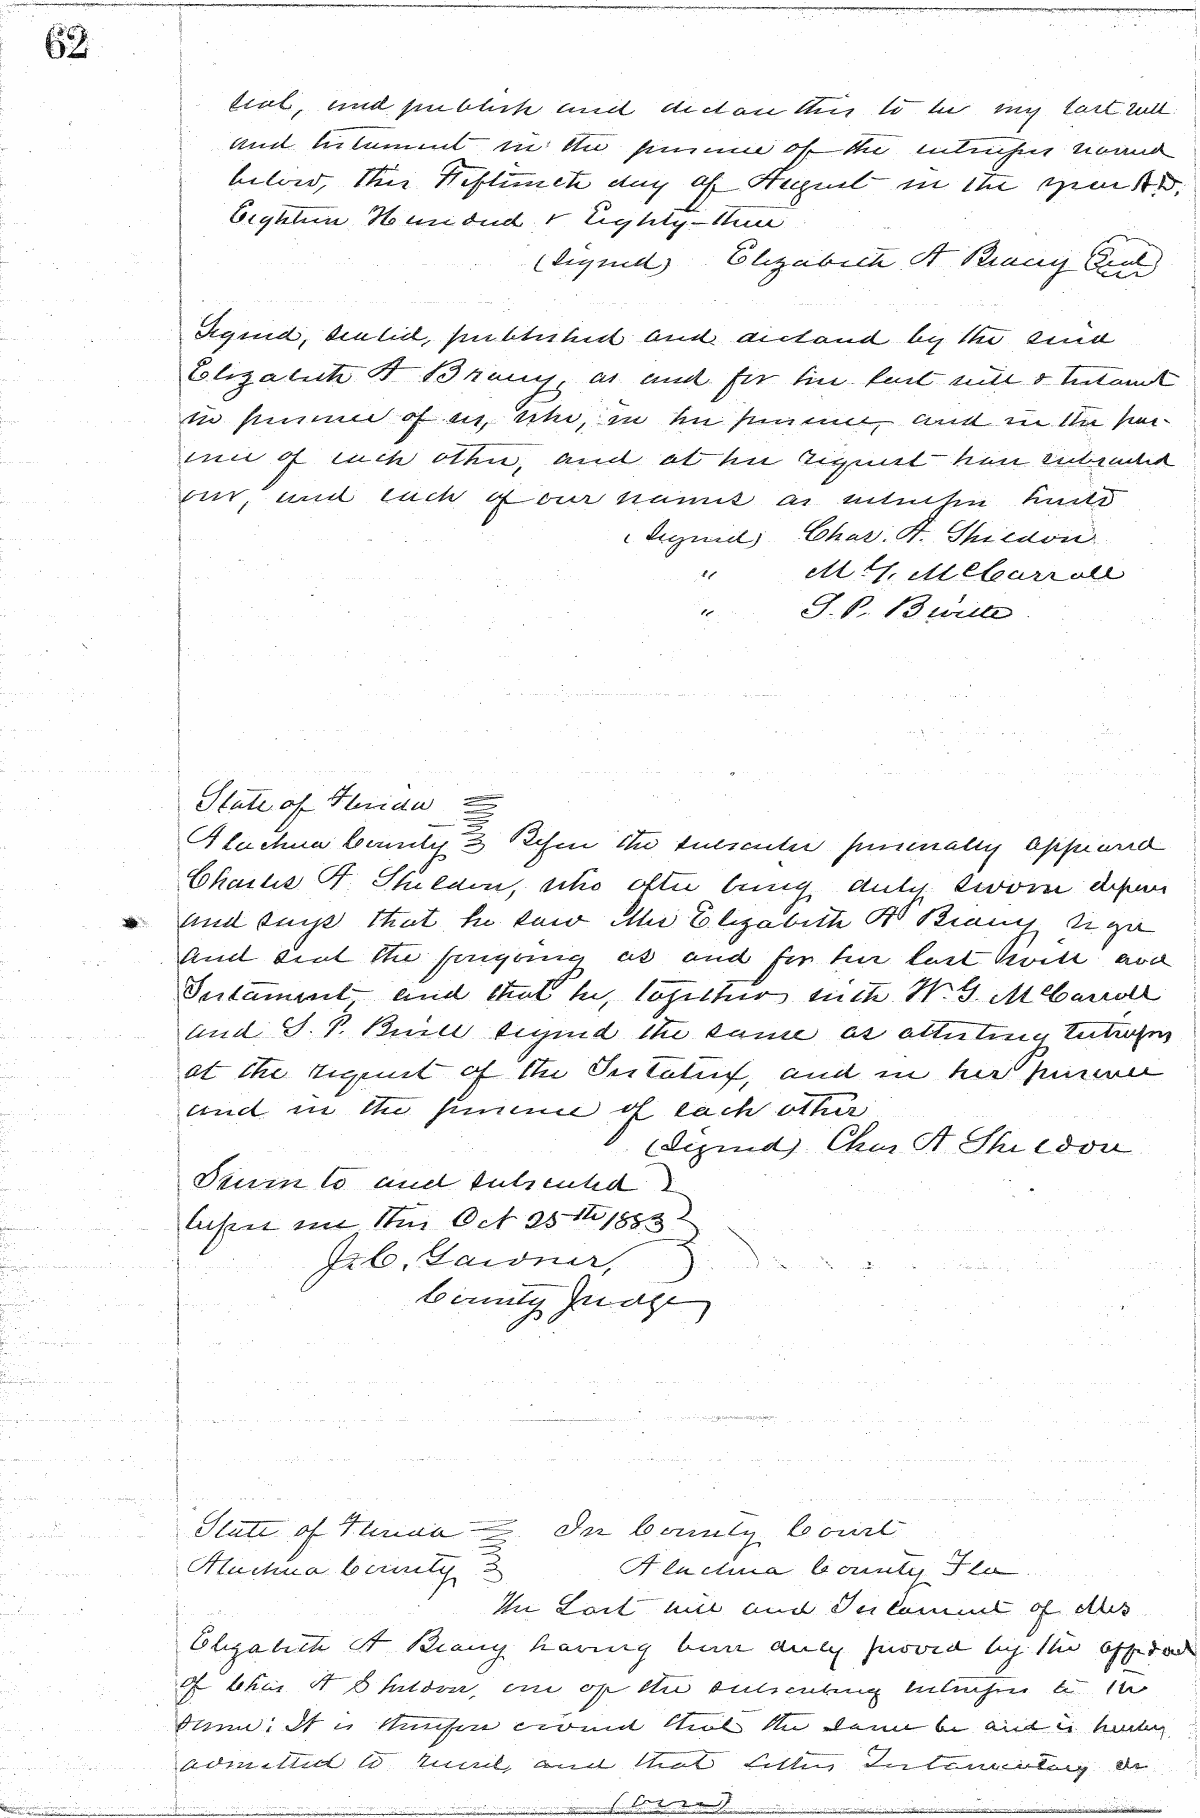 62
seal, and publish and declare this to be my last will
and testament in the presence of the witnesses named
below, this Fifteenth day of August in the year A.D.
Eighteen Hundred & Eighty-three
(Signed) Elizabeth A Seal
Signed, sealed, published and declared by the said
Elizabeth A as and for her last will &
in presence of us, who, in her presence, and in the pres-
ence of each other, and at her request have subscribed
our, and each of our names as witnesses hereto
(Signed) Chas. A. Sheldon
" McCarroll
" S. P.
State of Florida
Alachua County Before the subscriber personally appeared
Charles A. Sheldon, who after being duly sworn deposes
and says that he saw Mrs Elizabeth A sign
and seal the foregoing as and for her last will and
Testament, and that he, together with W. G. McCarroll
and S. P. signed the same as attesting witnesses
at the request of the Testatrix, and in her presence
and in the presence of each other
(Signed) Chas A Sheldon
Sworn to and subscribed
before me this Oct 25th 1883
County Judge
State of Florida In County Court
Alachua County Alachua County Fla
The Last will and Testament of Mrs
Elizabeth A having been duly proved by the
of Chas A Sheldon, one of the subscribing witnesses to the
same: It is therefore ordered that the same be and is hereby
admitted to record, and that Letters Testamentary do
(over)